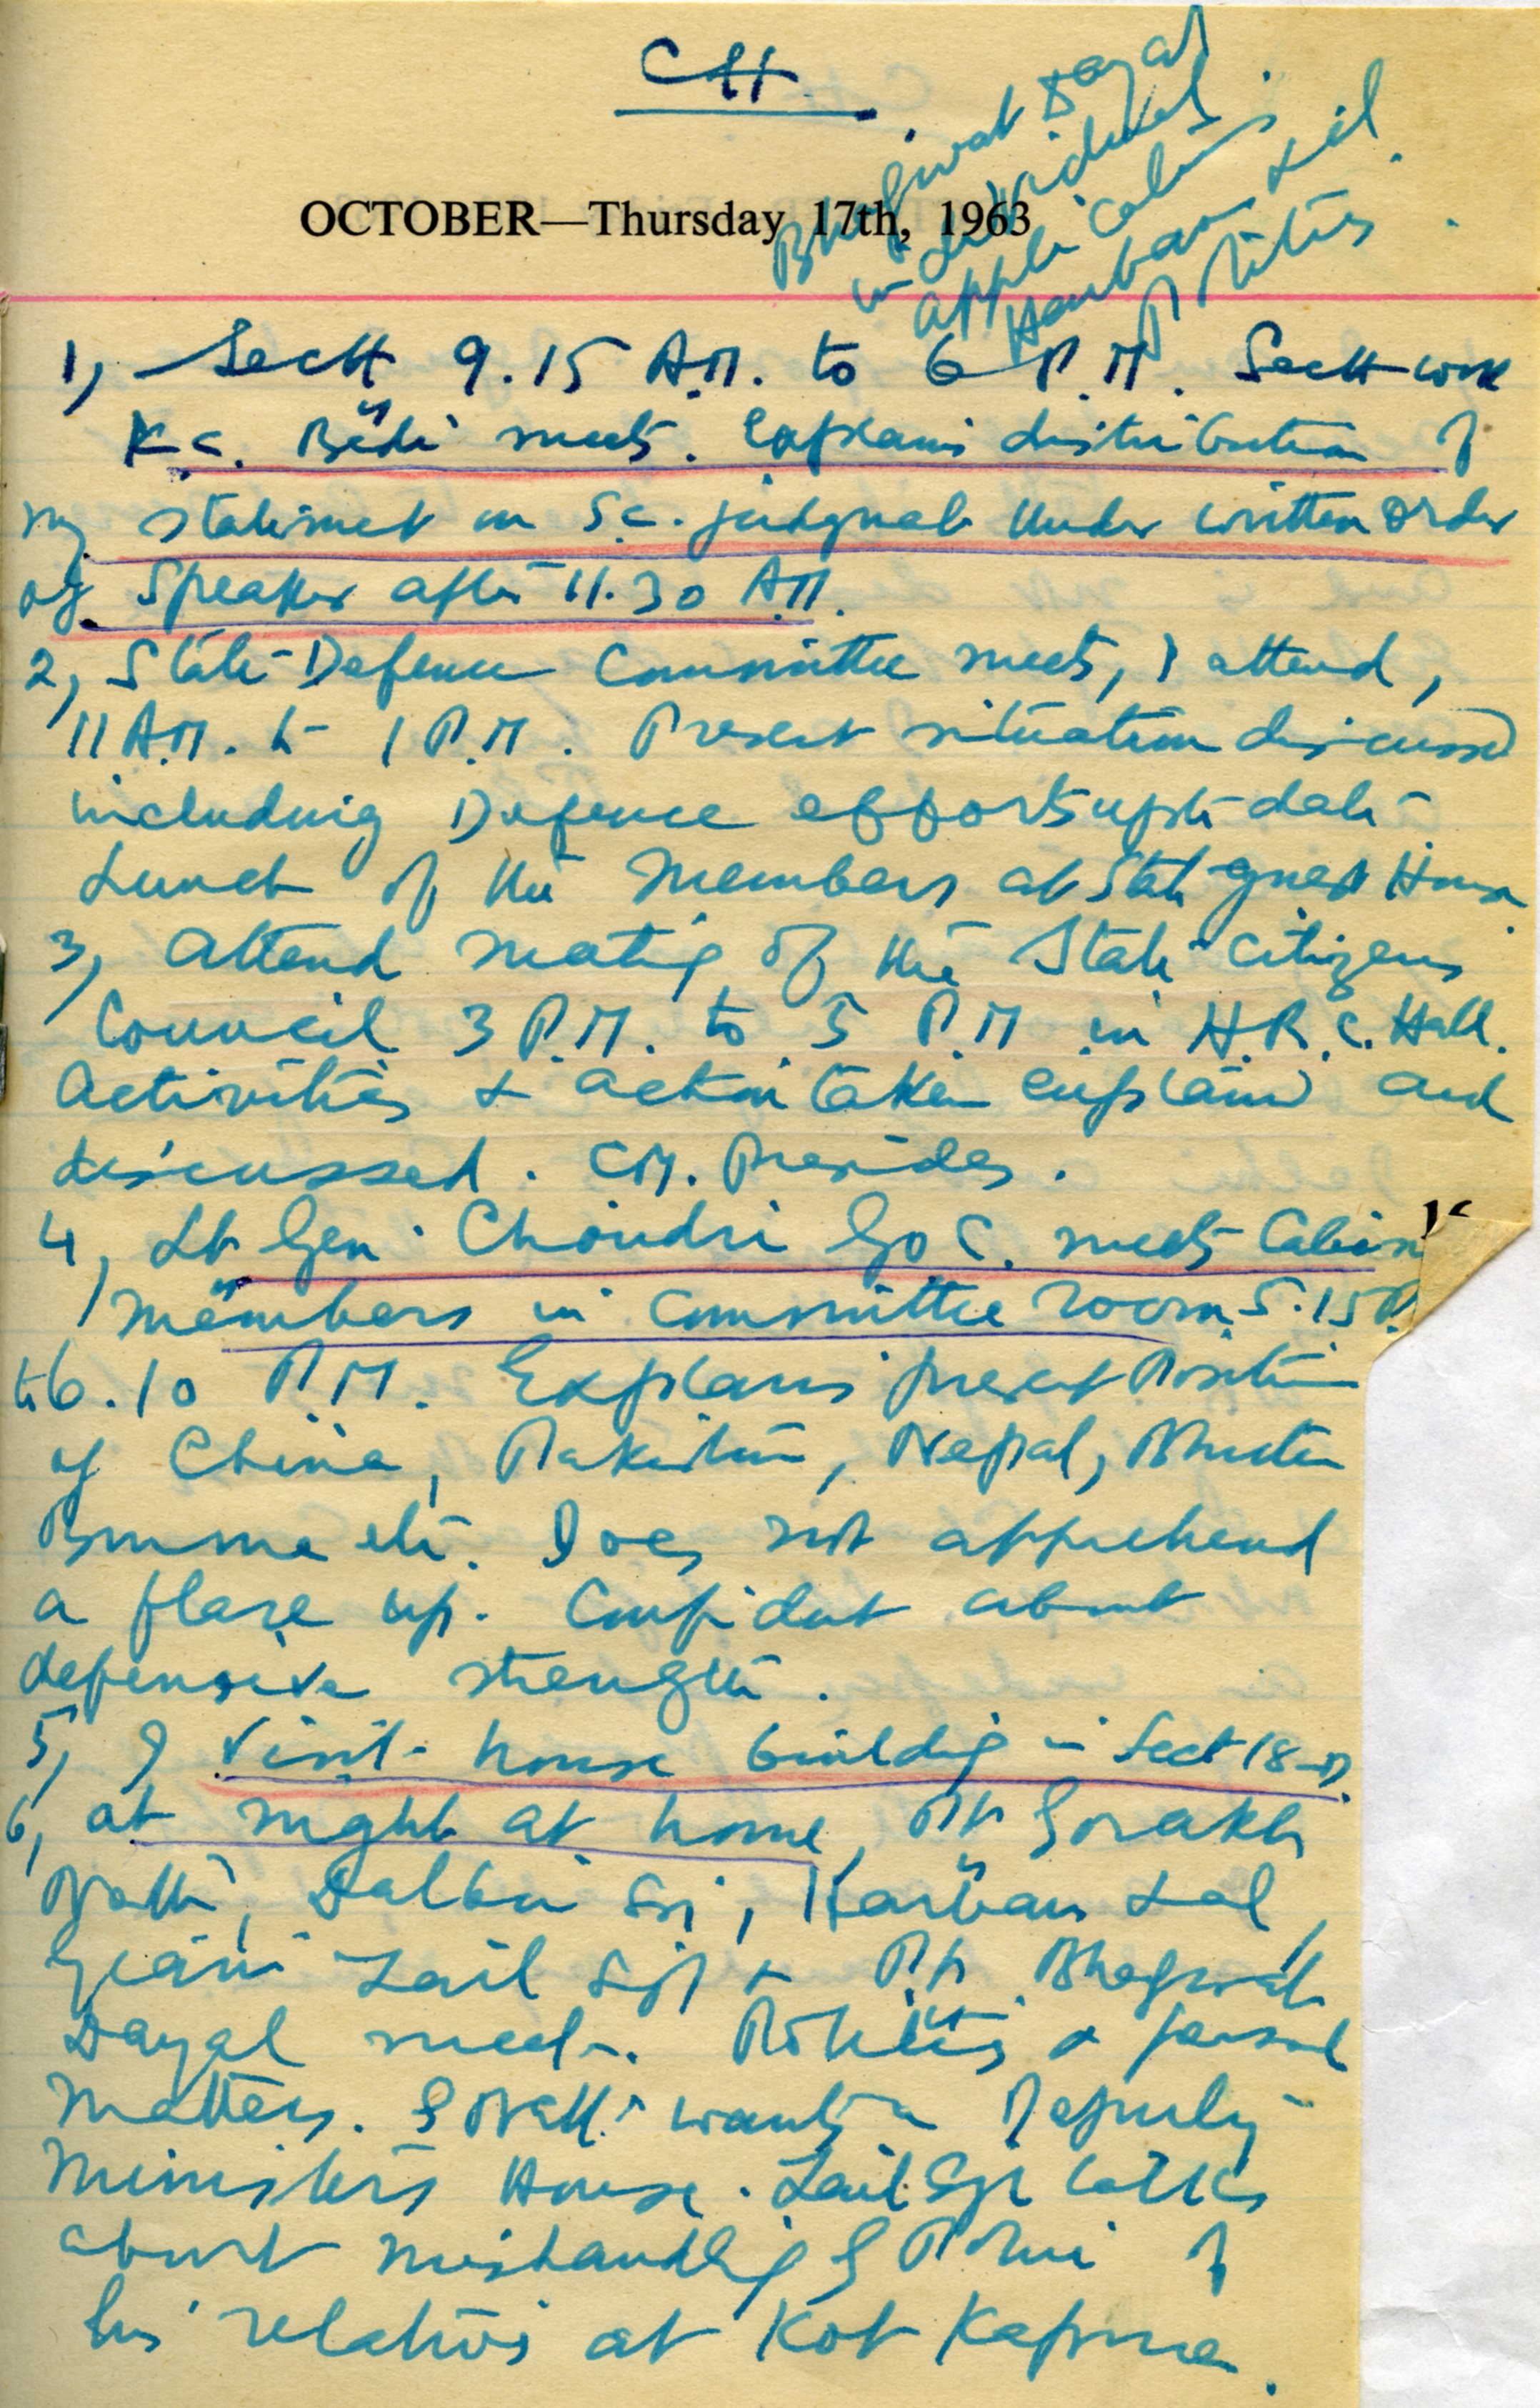 CH.
Bhagwat Dayal
individual
applications
Harbans Lal
Politics
OCTOBER—Thursday 17th, 1963
1, Sectt 9.15 A.M. to 6 P.M. Sectt work
K.C. Bedi meets. Explains distribution of
my statement on S.C. judgment under written order
of Speaker after 11.30 A.M.
2, State Defence Committee meets, I attend,
11 A.M. to 1 P.M. Present situation discussed
including Defence efforts upto date
Lunch of the Members at State Guest House.
3, Attend meeting of the State Citizens
Council 3 P.M. to 5 P.M in H.R.C. Hall.
Activities & action taken explained and
discussed. C.M. Presides.
4, Lt Gen. Choudri G.O.C. meets
Members in Committee room 5.15 P.
to 6.10 P.M. Explains present Position
of China, Pakistan, Nepal, Bhutan
Burma etc. Does not apprehend
a flare up. Confident about
defensive strength.
5, I visit house building in Sect 18-D.
6, at night at home, Pt Gorakh
Nath, Dalbir Sgh, Harbans Lal,
Giani Zail Sgh & Pt. Bhagwat
Dayal meet. Politics & personal
Matters. G Nath wants a Deputy
Ministers House. Zail Sgh talks
about mishandling of
his relatives at Kot Kapura.